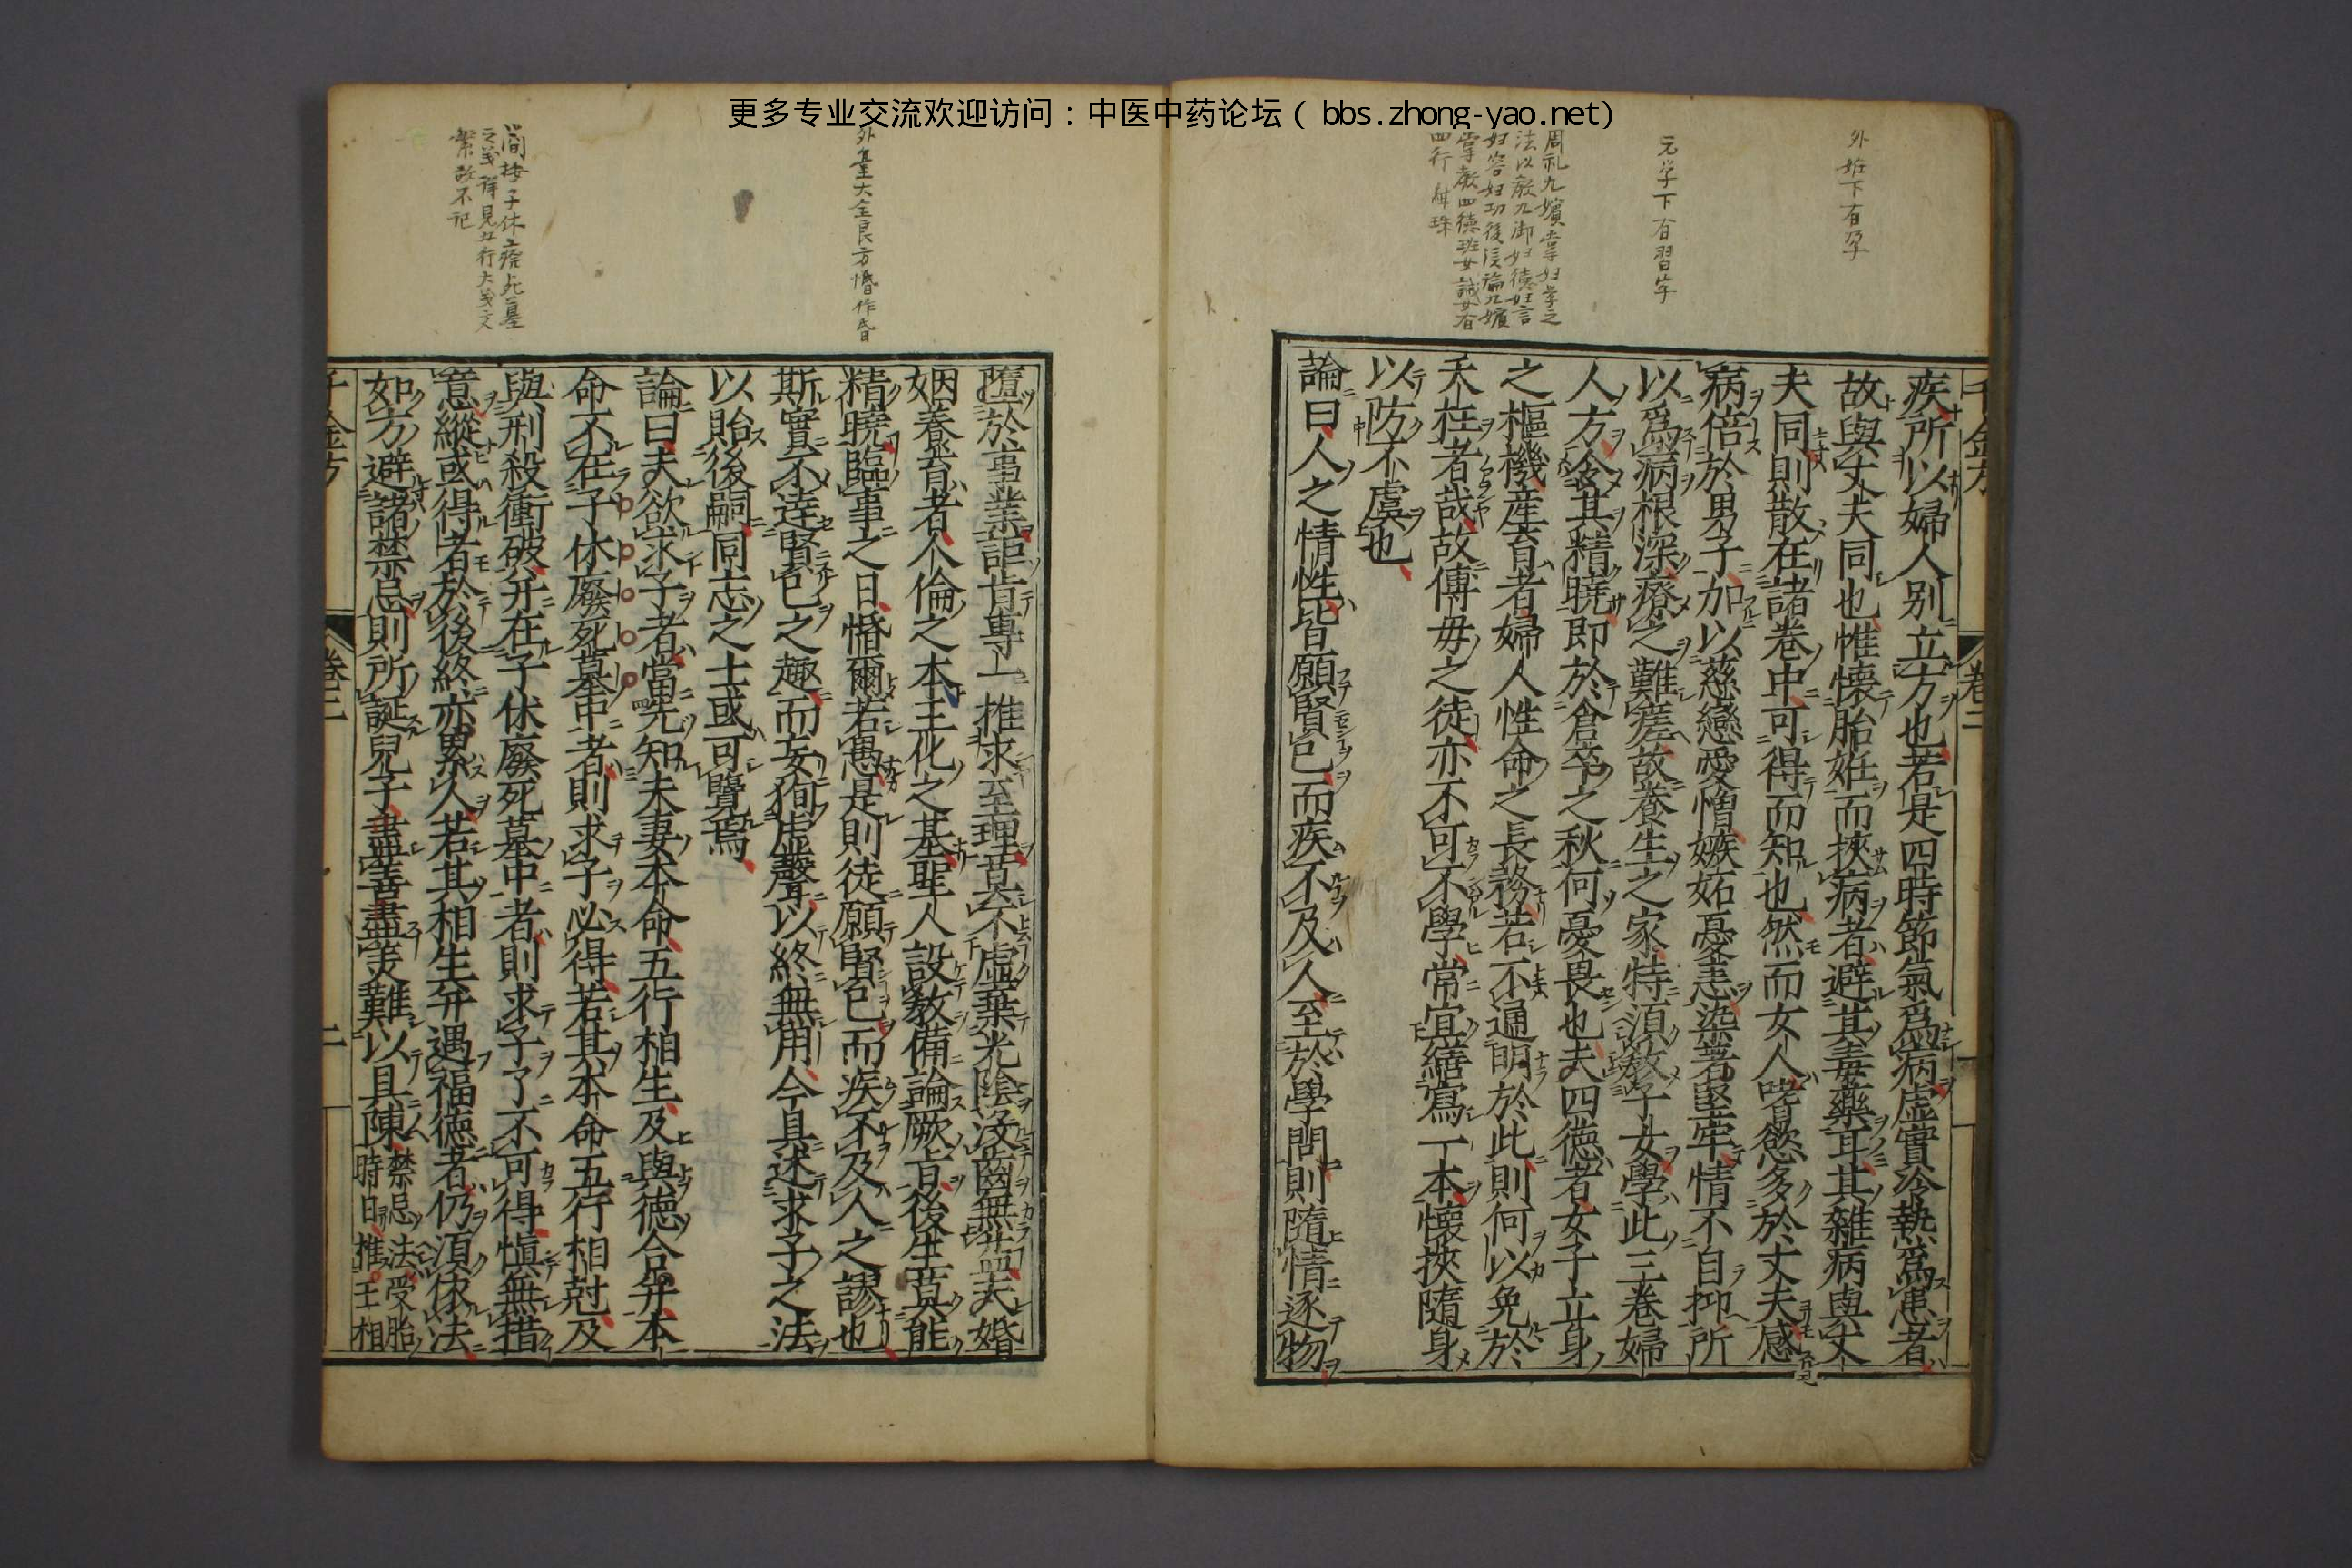 更多专业交流欢迎访问：中医中药论坛（ bbs.zhong-yao.net）
外妊下有孕
元学下有習字
周礼九嬪掌妇学之
法以教九御妇德妇言
妇容妇功後漢論九嬪
掌教四德班女誡女有
四行
千金方 卷二
疾所以婦人别立方也若是四時節氣爲病虚實冷熱爲患者
故與丈夫同也惟懷胎妊而挾病者避其毒藥耳其雜病與丈
夫同則散在諸卷中可得而知也然而女人嗜慾多於丈夫感
病倍於男子加以慈戀愛憎嫉妬憂恚染著堅牢情不自抑所
以爲病根深療之難瘥故養生之家特須教子女學此三卷婦
人方令其精曉即於倉卒之秋何憂畏也夫四德者女子立身
之樞機産育者婦人性命之長務若不通明於此則何以免於
夭枉者哉故傅母之徒亦不可不學常宜繕寫一本懷挾隨身
以防不虞也
論曰人之情性皆願賢己而疾不及人至於學問則隨情逐物
外臺大全良方惛作昏
簡按子休廢死墓
之義詳見五行大義文
繁故不記
墮於事業詎肯專一推求至理莫不虛棄光陰没齒無益夫婚
姻養育者人倫之本王化之基聖人設教備論厥旨後生莫能
精曉臨事之日惛爾若愚是則徒願賢己而疾不及人之謬也
斯實不達賢己之趣而妄狥虚聲以終無用今具述求子之法
以貽後嗣同志之士或可覽焉
論曰夫欲求子者當先知夫妻本命五行相生及與德合并本
命不在子休廢死墓中者則求子必得若其本命五行相尅及
與刑殺衝破并在子休廢死墓中者則求子了不可得慎無措
意縱或得者於後終亦累人若其相生并遇福德者仍須依法
如方避諸禁忌則所誕兒子盡善盡美難以具陳禁忌法受胎
時日推王相
千金方 卷二 二